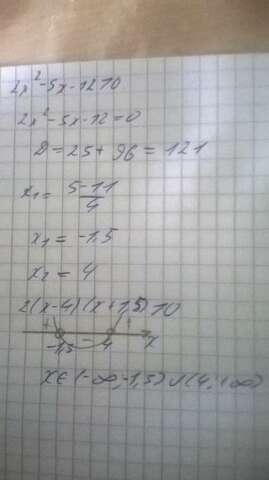 2x²-5x-12>0
2x²-5x-12=0
D=25+96=121
x₁=(5-11)/4
x₁=-1,5
x₂=4
2(x-4)(x+1,5)>0
+ - +
-1,5 4 x
x∈(-∞;-1,5)∪(4;+∞)